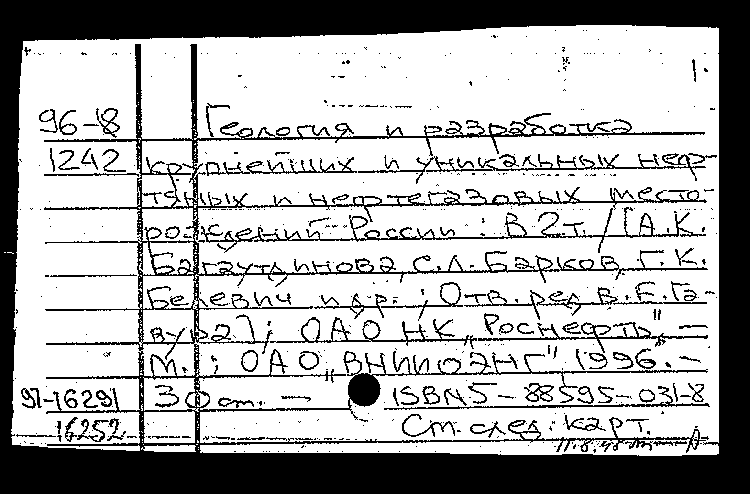 1.
96-18 Геология и разработка
1242 крупнейших и уникальных неф-
тяных и нефтегазовых место-
рождений России : В 2 т. / [А.К.
Багаутдинова, С.Л. Барков, Г.К.
Белевич и др. ; Отв. ред. В.Е. Га-
вура] ; ОАО НК „Роснефть", —
М. : ОАО „ВНИИОЭНГ" 1996. —
97-16291 30 см. — ISBN 5-88595-031-8
16252 Ст. след. карт.
11.8.98